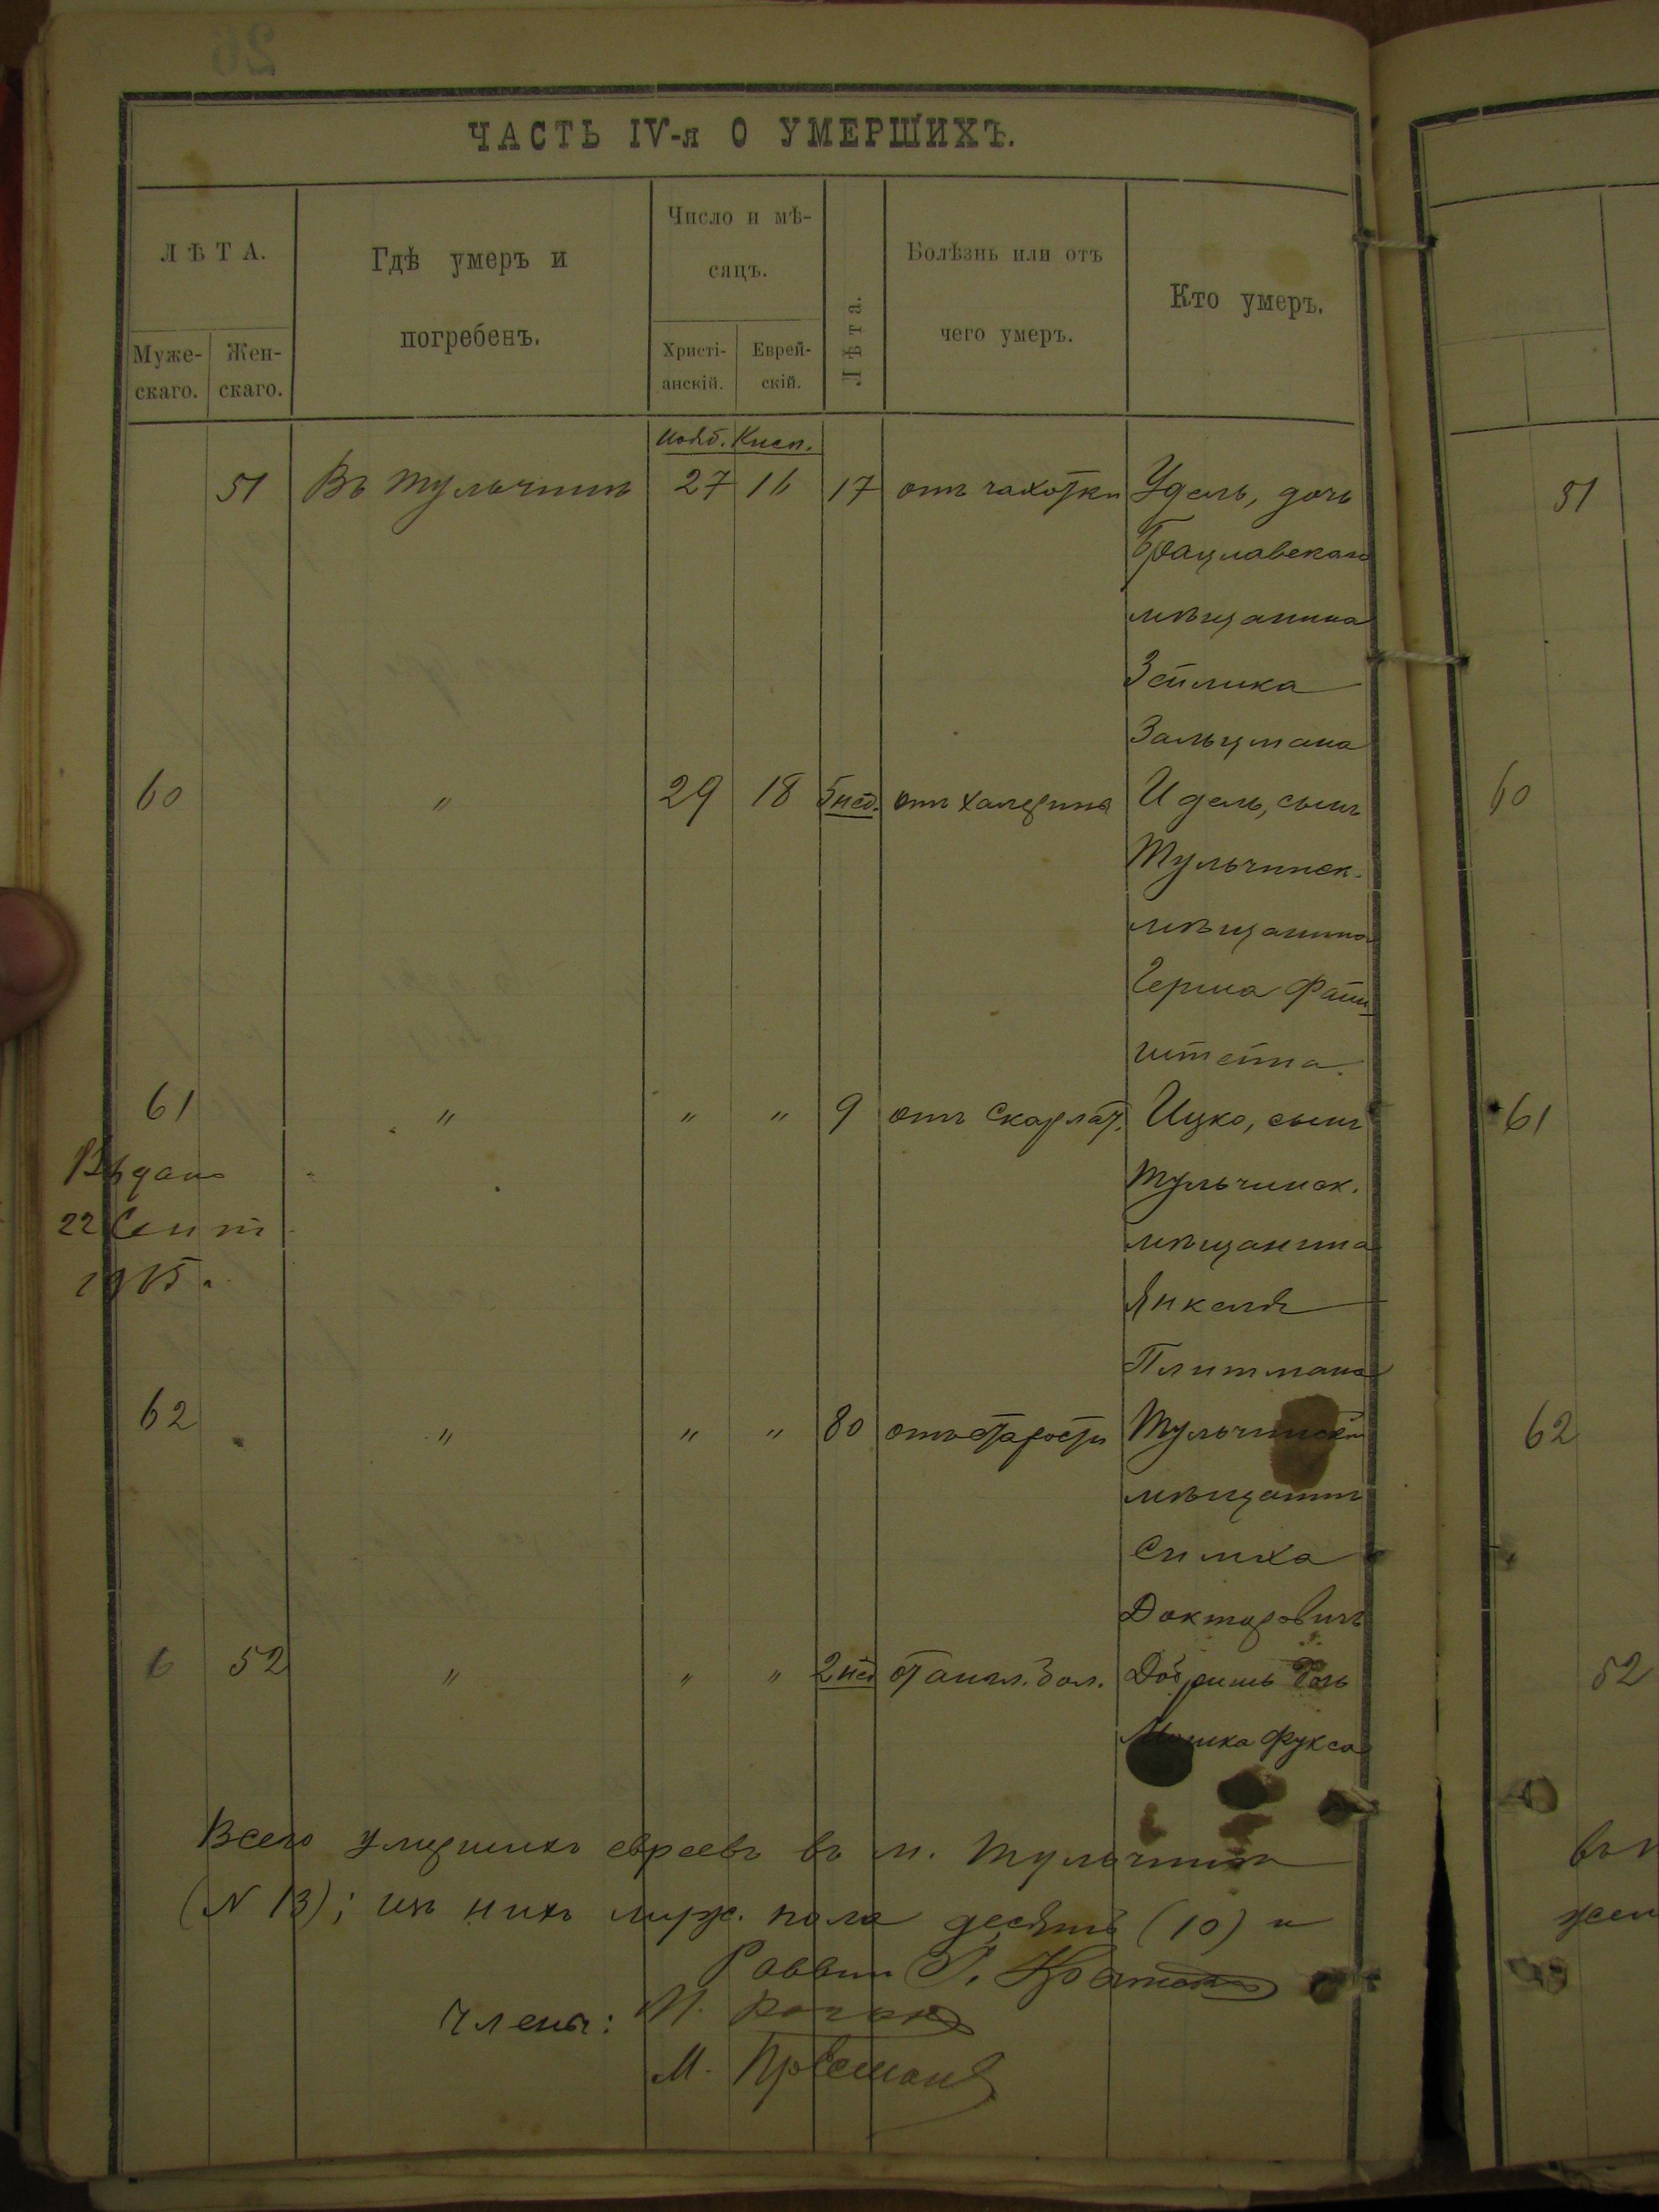 26
ЧАСТЬ IV-я О УМЕРШИХЪ.
ЛѢТА.
Муже-
скаго.
Жен-
скаго.
Гдѣ умеръ и
погребенъ.
Число и мѣ-
сяцъ.
Христі-
анскій.
Еврей-
скій.
Лѣта.
Болѣзнь или отъ
чего умеръ.
Кто умеръ.
нояб. Кисл.
51 Въ Тульчинѣ 27 16 17 отъ чахотки Удель, дочь
Брацлавскаго
мѣщанина
Зейлика
Зальцмана
60 " 29 18 5 нед. Идель, сынъ
Тульчинск.
мѣщанина
Герша Файн
штейна.
61 " " " 9 отъ скарлат. Ицко, сынъ
Выдано
22 Сент
1915 г.
Тульчинск.
мѣщанина
Янкеля
Плитмана
62 " " " 80 отъ старости Тульчинскій
мѣщанинъ
Симха
Докторовичъ
6 52 " " " 2 нед от англ. бол. Добришь дочь
Мошка Фукса
Всего умершихъ евреевъ въ м. Тульчинѣ
(N 13); изъ нихъ муж. пола десять (10) и
Раввин
Члены: М. Коган
М.
51
60
61
62
52